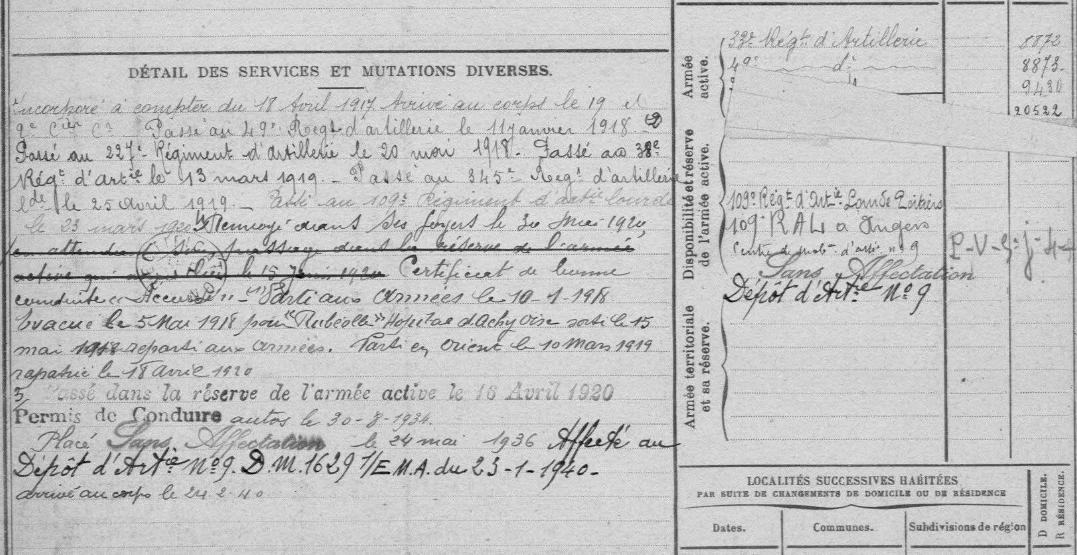 DÉTAIL DES SERVICES ET MUTATIONS DIVERSES.
Incorporé à compter du 18 Avril 1917 Arrivé au corps le 19 et
2e Cier Ct Passé au 49e Regt d'artillerie le 11 janvier 1918
Passé au 227e Régiment d'artillerie le 20 mai 1918. Passé au 38e
Régt d'artie le 13 mars 1919. - Passé au 345e Regt d'artillerie
lde le 25 avril 1919. - Passé au 109e Régiment d'artie lourde
le 23 mars 1920 Renvoyé dans ses foyers le 30 Mai 1920,
en attendant son passage dans la réserve de l'armée
active qui le 15 Juin 1920 Certificat de bonne
conduite "Accusé" - "Parti aux armées le 10-1-1918
Evacué le 5 Mai 1918 pour "Rubéole" Hopital d'Achy Oise sorti le 15
mai 1918 reparti aux armées. Parti en Orient le 10 Mars 1919
rapatrié le 18 avril 1920
Passé dans la réserve de l'armée active le 16 Avril 1920
Permis de Conduire autos le 30-8-1934.
Placé Sans Affectation le 24 mai 1936 Affecté au
Dépôt d'Artie No 9. D.M. 1629 1/E.M.A. du 23-1-1940-
arrivé au corps le 24-2-40
Armée active.
Régt d'Artillerie 8872
49e d° 8873
9430
20522
Disponibilité et réserve de l'armée active.
109e Régt d'Artie Lourde Poitiers
109e R A L à Angers
Centre de mob. d'artie no 9
Sans Affectation
Dépôt d'Artie No 9
Armée territoriale et sa réserve.
LOCALITÉS SUCCESSIVES HABITÉES
PAR SUITE DE CHANGEMENTS DE DOMICILE OU DE RÉSIDENCE
Dates. Communes. Subdivisions de région
D DOMICILE.
R RÉSIDENCE.